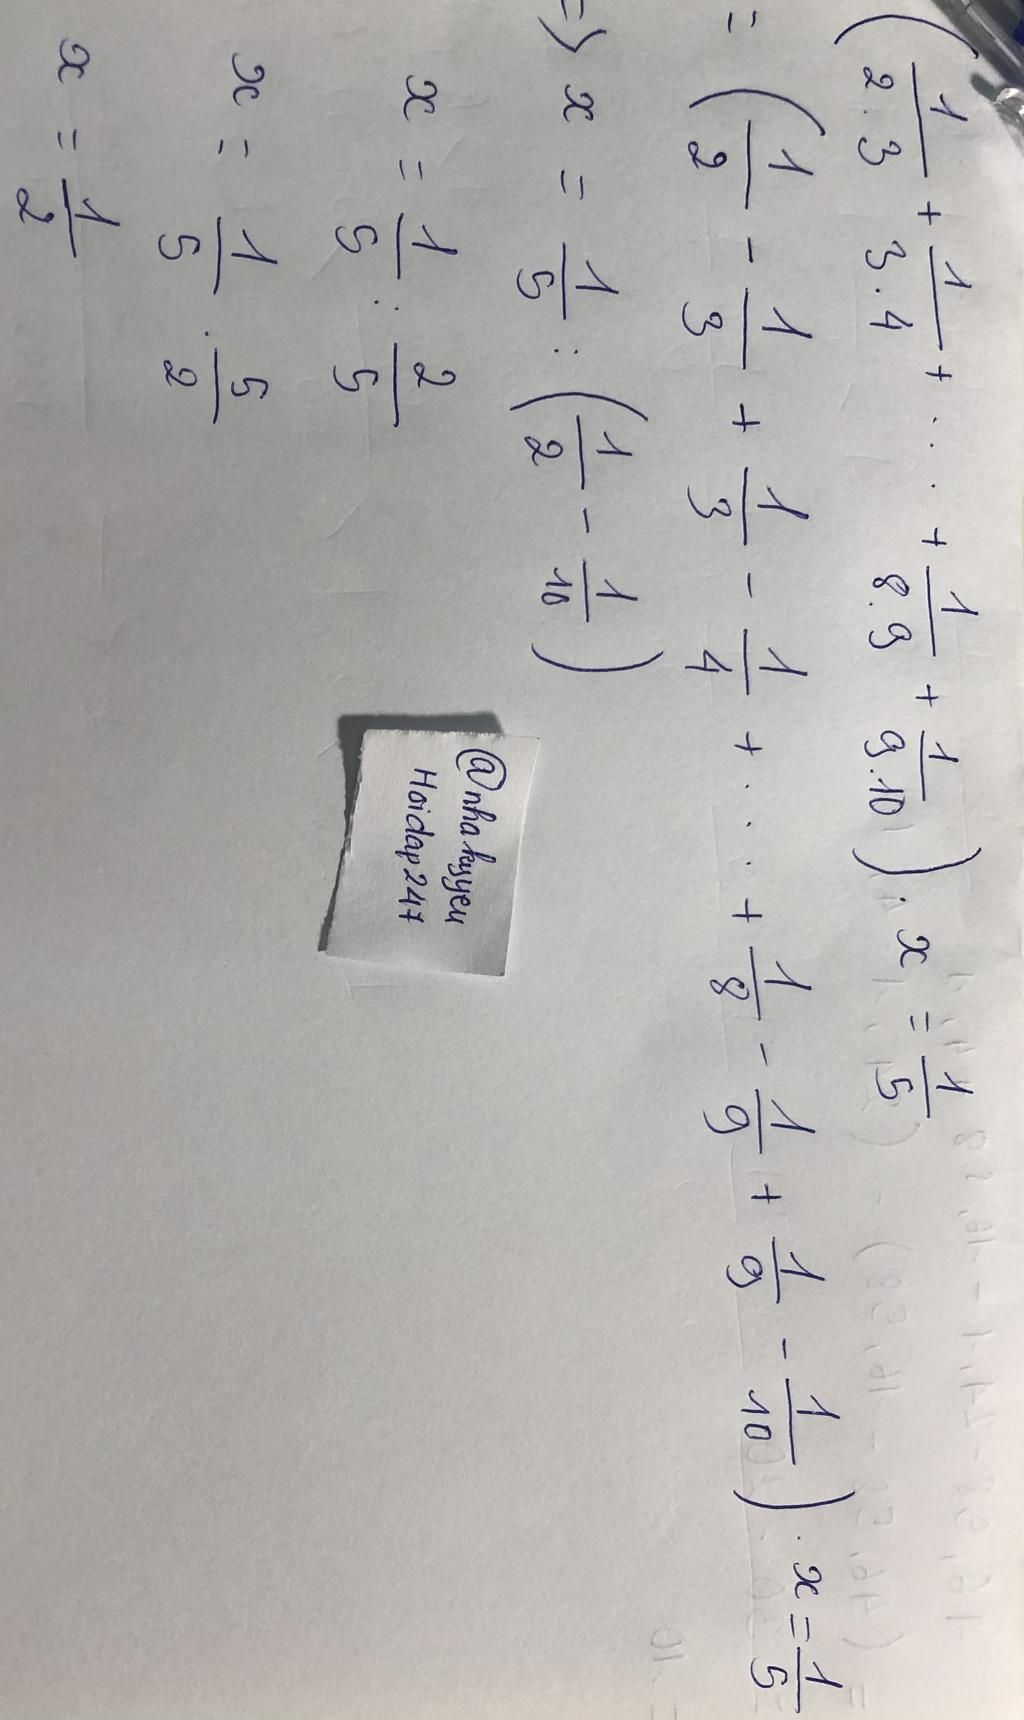 (1/2.3 + 1/3.4 + .... + 1/8.9 + 1/9.10) . x = 1/5
= (1/2 - 1/3 + 1/3 - 1/4 + .... + 1/8 - 1/9 + 1/9 - 1/10) . x = 1/5
=> x = 1/5 : (1/2 - 1/10)
x = 1/5 : 2/5
x = 1/5 . 5/2
x = 1/2
@nhakyyeu
Hoidap247